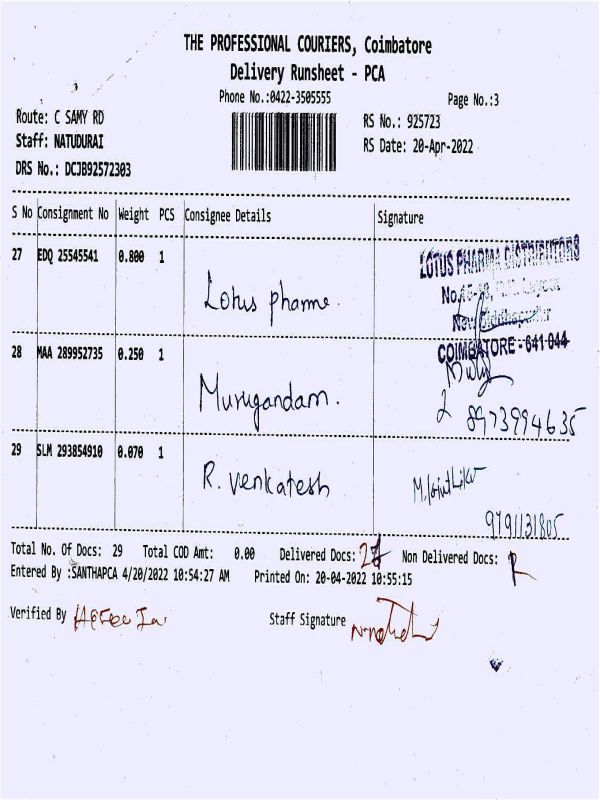 THE PROFESSIONAL COURIERS, Coimbatore
Delivery Runsheet - PCA
Phone No.:0422-3505555
Page No.:3
Route: C SAMY RD
RS No.: 925723
Staff: NATUDURAI
RS Date: 20-Apr-2022
DRS No.: DCJB92572303
S No Consignment No Weight PCS Consignee Details Signature
27 EDQ 25545541 0.800 1
Lotus pharme.
LOTUS PHARMA DISTRIBUTORS
New Siddhapudur
COIMBATORE - 641 044
28 MAA 289952735 0.250 1
Murugandam.
8973994635
29 SLM 293854910 0.070 1
R. venkatesh
9791131805
Total No. Of Docs: 29 Total COD Amt: 0.00 Delivered Docs: Non Delivered Docs:
Entered By :SANTHAPCA 4/20/2022 10:54:27 AM Printed On: 20-04-2022 10:55:15
Verified By
Staff Signature